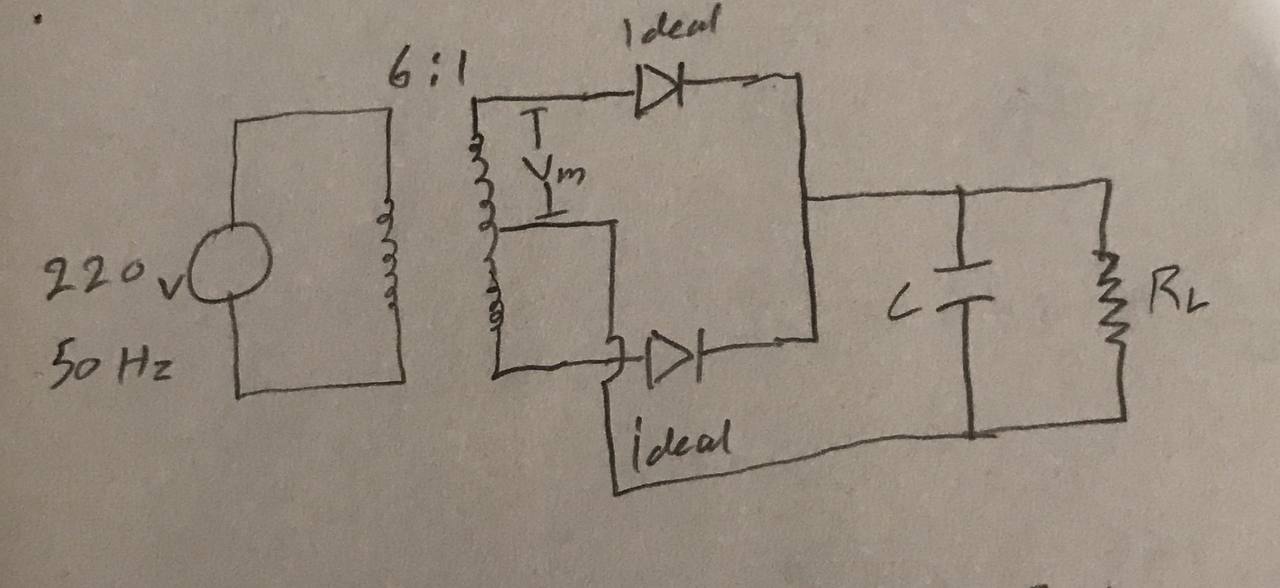 Ideal
6:1
Vm
220 v
50 Hz
C
RL
ideal